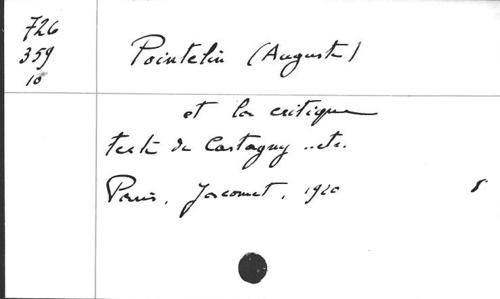 726
359
10
Pointelin (Auguste)
et la critique
texte de Castagny ..etc.
Paris, Jacomet, 1920
8